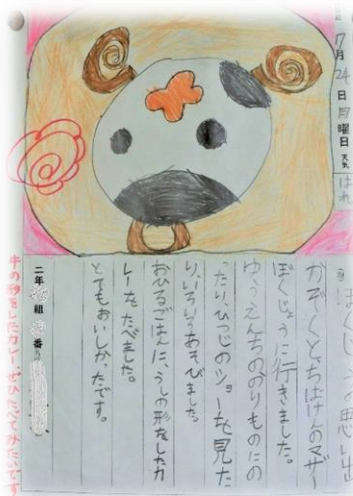 7月24日月曜日 天気 はれ
ぼくじょうの思い出
かぞくとちばけんのマザー
ぼくじょうに行きました。
ゆうえんちののりものにの
ったり、ひつじのショーを見た
り、いろいろあそびました。
おひるごはんに、うしの形をしたカ
レーをたべました。
とてもおいしかったです。
二年 組 番
牛の形をしたカレー、ぜひたべてみたいです